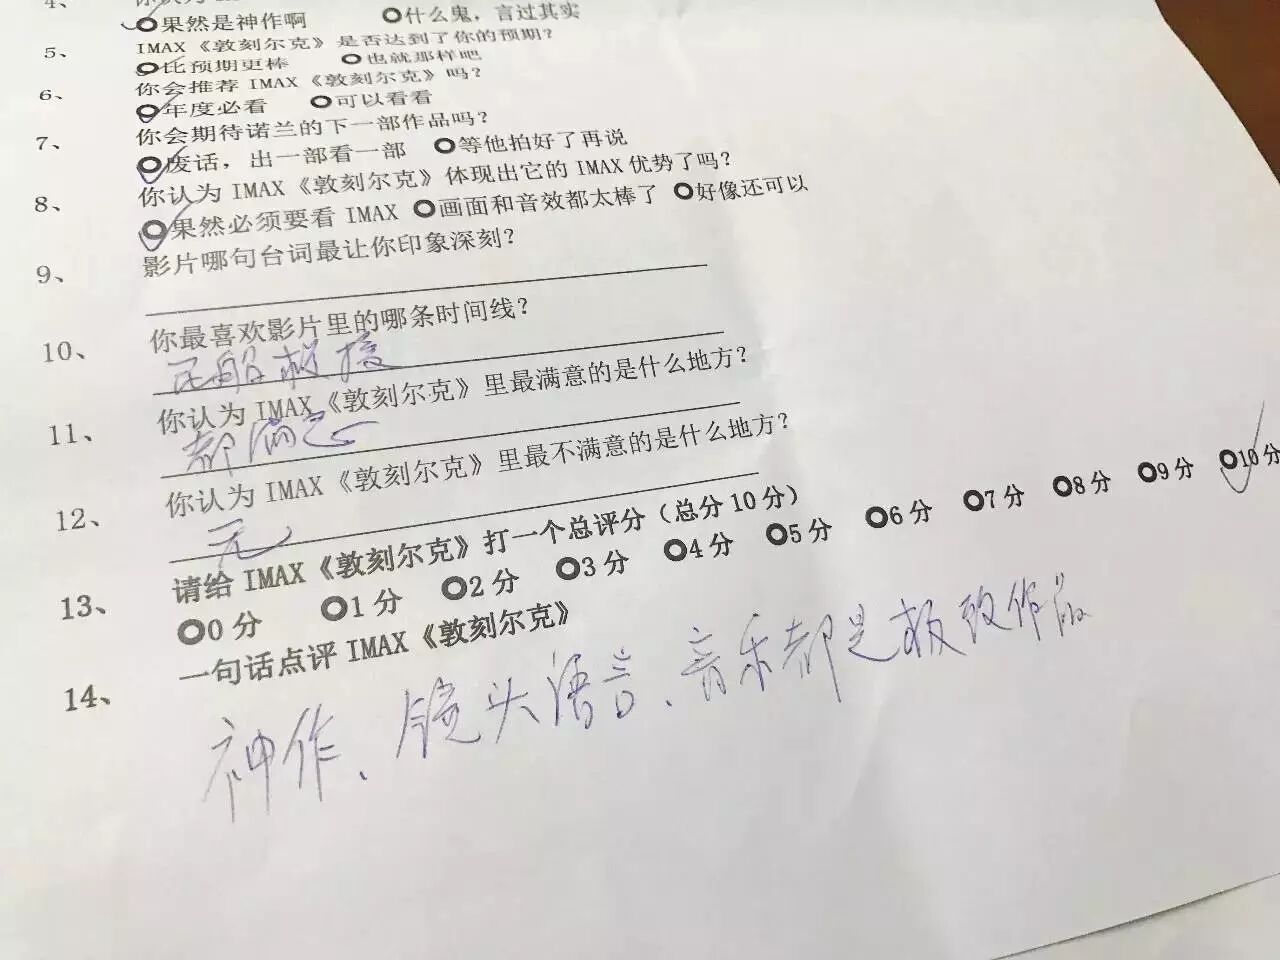 4、
果然是神作啊 什么鬼，言过其实
5、 IMAX《敦刻尔克》是否达到了你的预期？
比预期更棒 也就那样吧
6、 你会推荐 IMAX《敦刻尔克》吗？
年度必看 可以看看
7、 你会期待诺兰的下一部作品吗？
废话，出一部看一部 等他拍好了再说
8、 你认为 IMAX《敦刻尔克》体现出它的 IMAX 优势了吗？
果然必须要看 IMAX 画面和音效都太棒了 好像还可以
9、 影片哪句台词最让你印象深刻？
10、 你最喜欢影片里的哪条时间线？
民船救援
11、 你认为 IMAX《敦刻尔克》里最满意的是什么地方？
都满意
12、 你认为 IMAX《敦刻尔克》里最不满意的是什么地方？
无
13、 请给 IMAX《敦刻尔克》打一个总评分（总分 10 分）
0 分 1 分 2 分 3 分 4 分 5 分 6 分 7 分 8 分 9 分 10 分
14、 一句话点评 IMAX《敦刻尔克》
神作、镜头语言、音乐都是极致作品